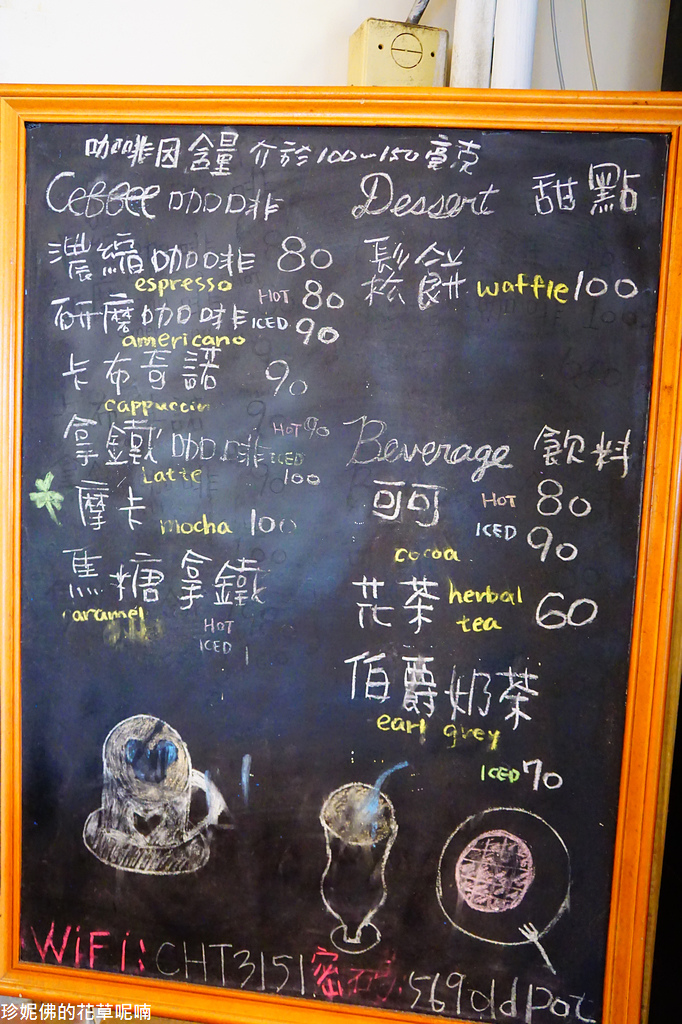 咖啡因含量 介於100~150毫克
Coffee 咖啡
濃縮咖啡 80
espresso
研磨咖啡 HOT 80
ICED 90
americano
卡布奇諾 90
cappuccin
拿鐵咖啡 HOT 90
ICED 100
Latte
摩卡 mocha 100
焦糖拿鐵
caramel
HOT
ICED
Dessert 甜點
鬆餅 waffle 100
Beverage 飲料
可可 HOT 80
ICED 90
cocoa
花茶 herbal tea 60
伯爵奶茶
earl grey
ICED 70
WiFi: CHT3151 密碼: 569oldpot
珍妮佛的花草呢喃